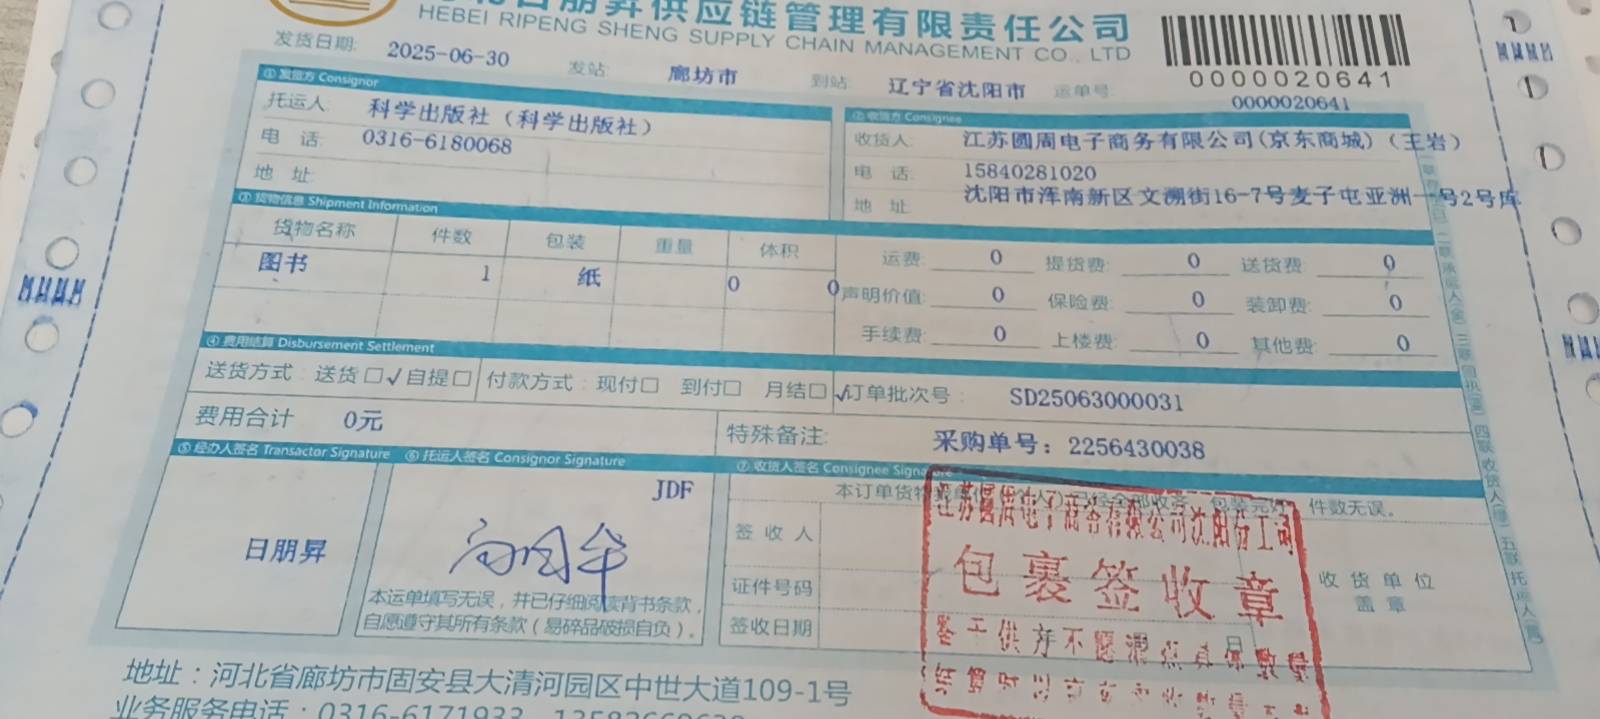 日朋昇供应链管理有限责任公司
HEBEI RIPENG SHENG SUPPLY CHAIN MANAGEMENT CO., LTD
发货日期: 2025-06-30 发站 廊坊市 到站 辽宁省沈阳市 运单号:
0000020641
0000020641
① 发货方 Consignor
托运人: 科学出版社（科学出版社）
电 话: 0316-6180068
地 址:
② 收货方 Consignee
收货人: 江苏圆周电子商务有限公司(京东商城)（王岩）
电 话: 15840281020
地 址: 沈阳市浑南新区文溯街16-7号麦子屯亚洲一号2号库
③ 货物信息 Shipment Information
货物名称 件数 包装 重量 体积
图书 1 纸 0 0
运费: 0 提货费: 0 送货费: 0
声明价值: 0 保险费: 0 装卸费: 0
手续费: 0 上楼费: 0 其他费: 0
④ 费用结算 Disbursement Settlement
送货方式: 送货□√自提□ 付款方式: 现付□ 到付□ 月结□√订单批次号: SD25063000031
费用合计 0元 特殊备注: 采购单号：2256430038
⑤ 经办人签名 Transactor Signature ⑥ 托运人签名 Consignor Signature ⑦ 收货人签名 Consignee Signature
日朋昇
JDF
本运单填写无误，并已仔细阅读背书条款，
自愿遵守其所有条款（易碎品破损自负）。
本订单货物 件数无误。
签 收 人
证件号码
签收日期 日
收 货 单 位
盖 章
包裹签收章
地址：河北省廊坊市固安县大清河园区中世大道109-1号
业务服务电话：0316-6171933